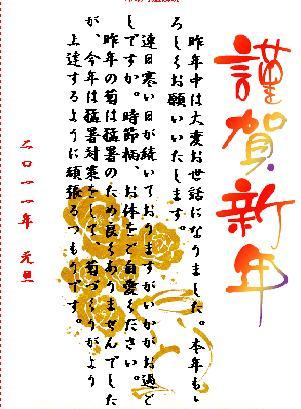 謹賀新年
昨年中は大変お世話になりました。本年もよ
ろしくお願いいたします。
連日寒い日が続いておりますがいかがお過ご
しですか。時節柄、お体をご自愛ください。
昨年の菊は猛暑のため良くありませんでした
が、今年は猛暑対策をして、菊づくりがより
上達するように頑張るつもりです。
二〇一一年 元旦